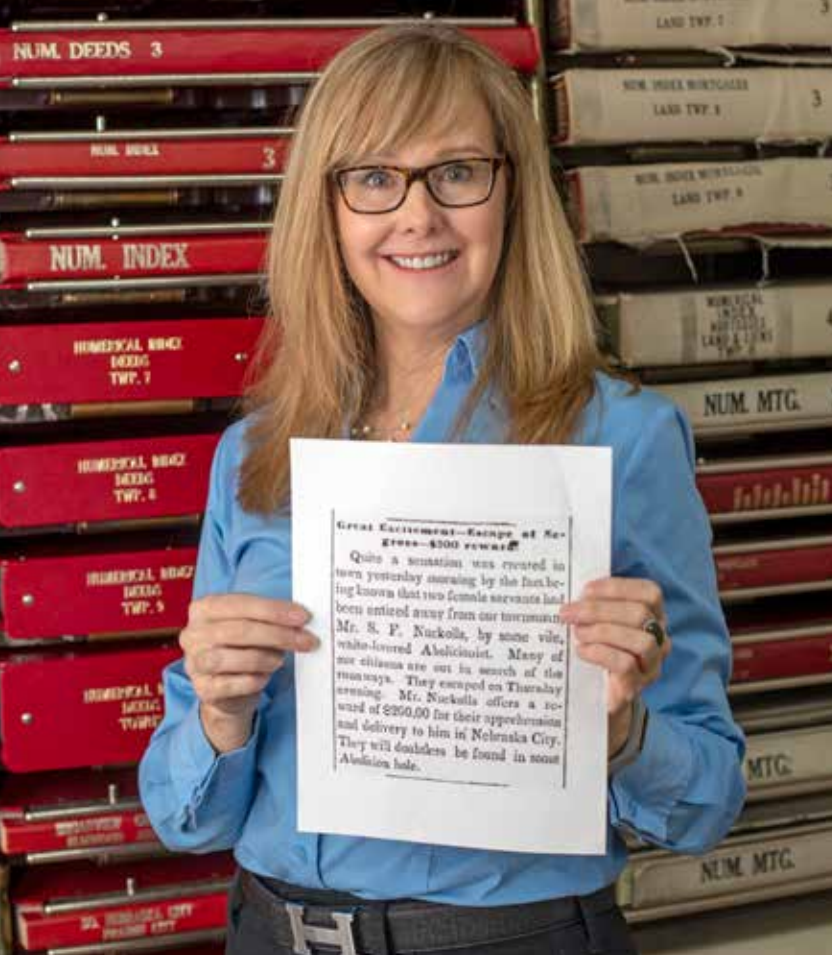 NUM. DEEDS 3
NUM. INDEX 3
NUM. INDEX
NUMERICAL INDEX
DEEDS
TWP. 7
NUMERICAL INDEX
DEEDS
TWP. 8
NUMERICAL INDEX
DEEDS
TWP. 9
NUMERICAL
DEEDS
NEBRASKA CITY
LAND TWP. 7 3
NUM. INDEX MORTGAGES
LAND TWP. 8
3
NUM. INDEX MORTGAGES
LAND TWP. 9
NUMERICAL
INDEX
MORTGAGES
LAND &
NUM. MTG.
MTG.
NUM. MTG.
Great Excitement—Escape of Ne-
groes—$200 reward
Quite a sensation was created in
town yesterday morning by the fact be-
ing known that two female servants had
been enticed away from our townsman
Mr. S. F. Nuckolls, by some vile,
white-livered Abolitionist. Many of
our citizens are out in search of the
runaways. They escaped on Thursday
evening. Mr. Nuckolls offers a re-
ward of $200,00 for their apprehension
and delivery to him in Nebraska City.
They will doubtless be found in some
Abolition hole.
H